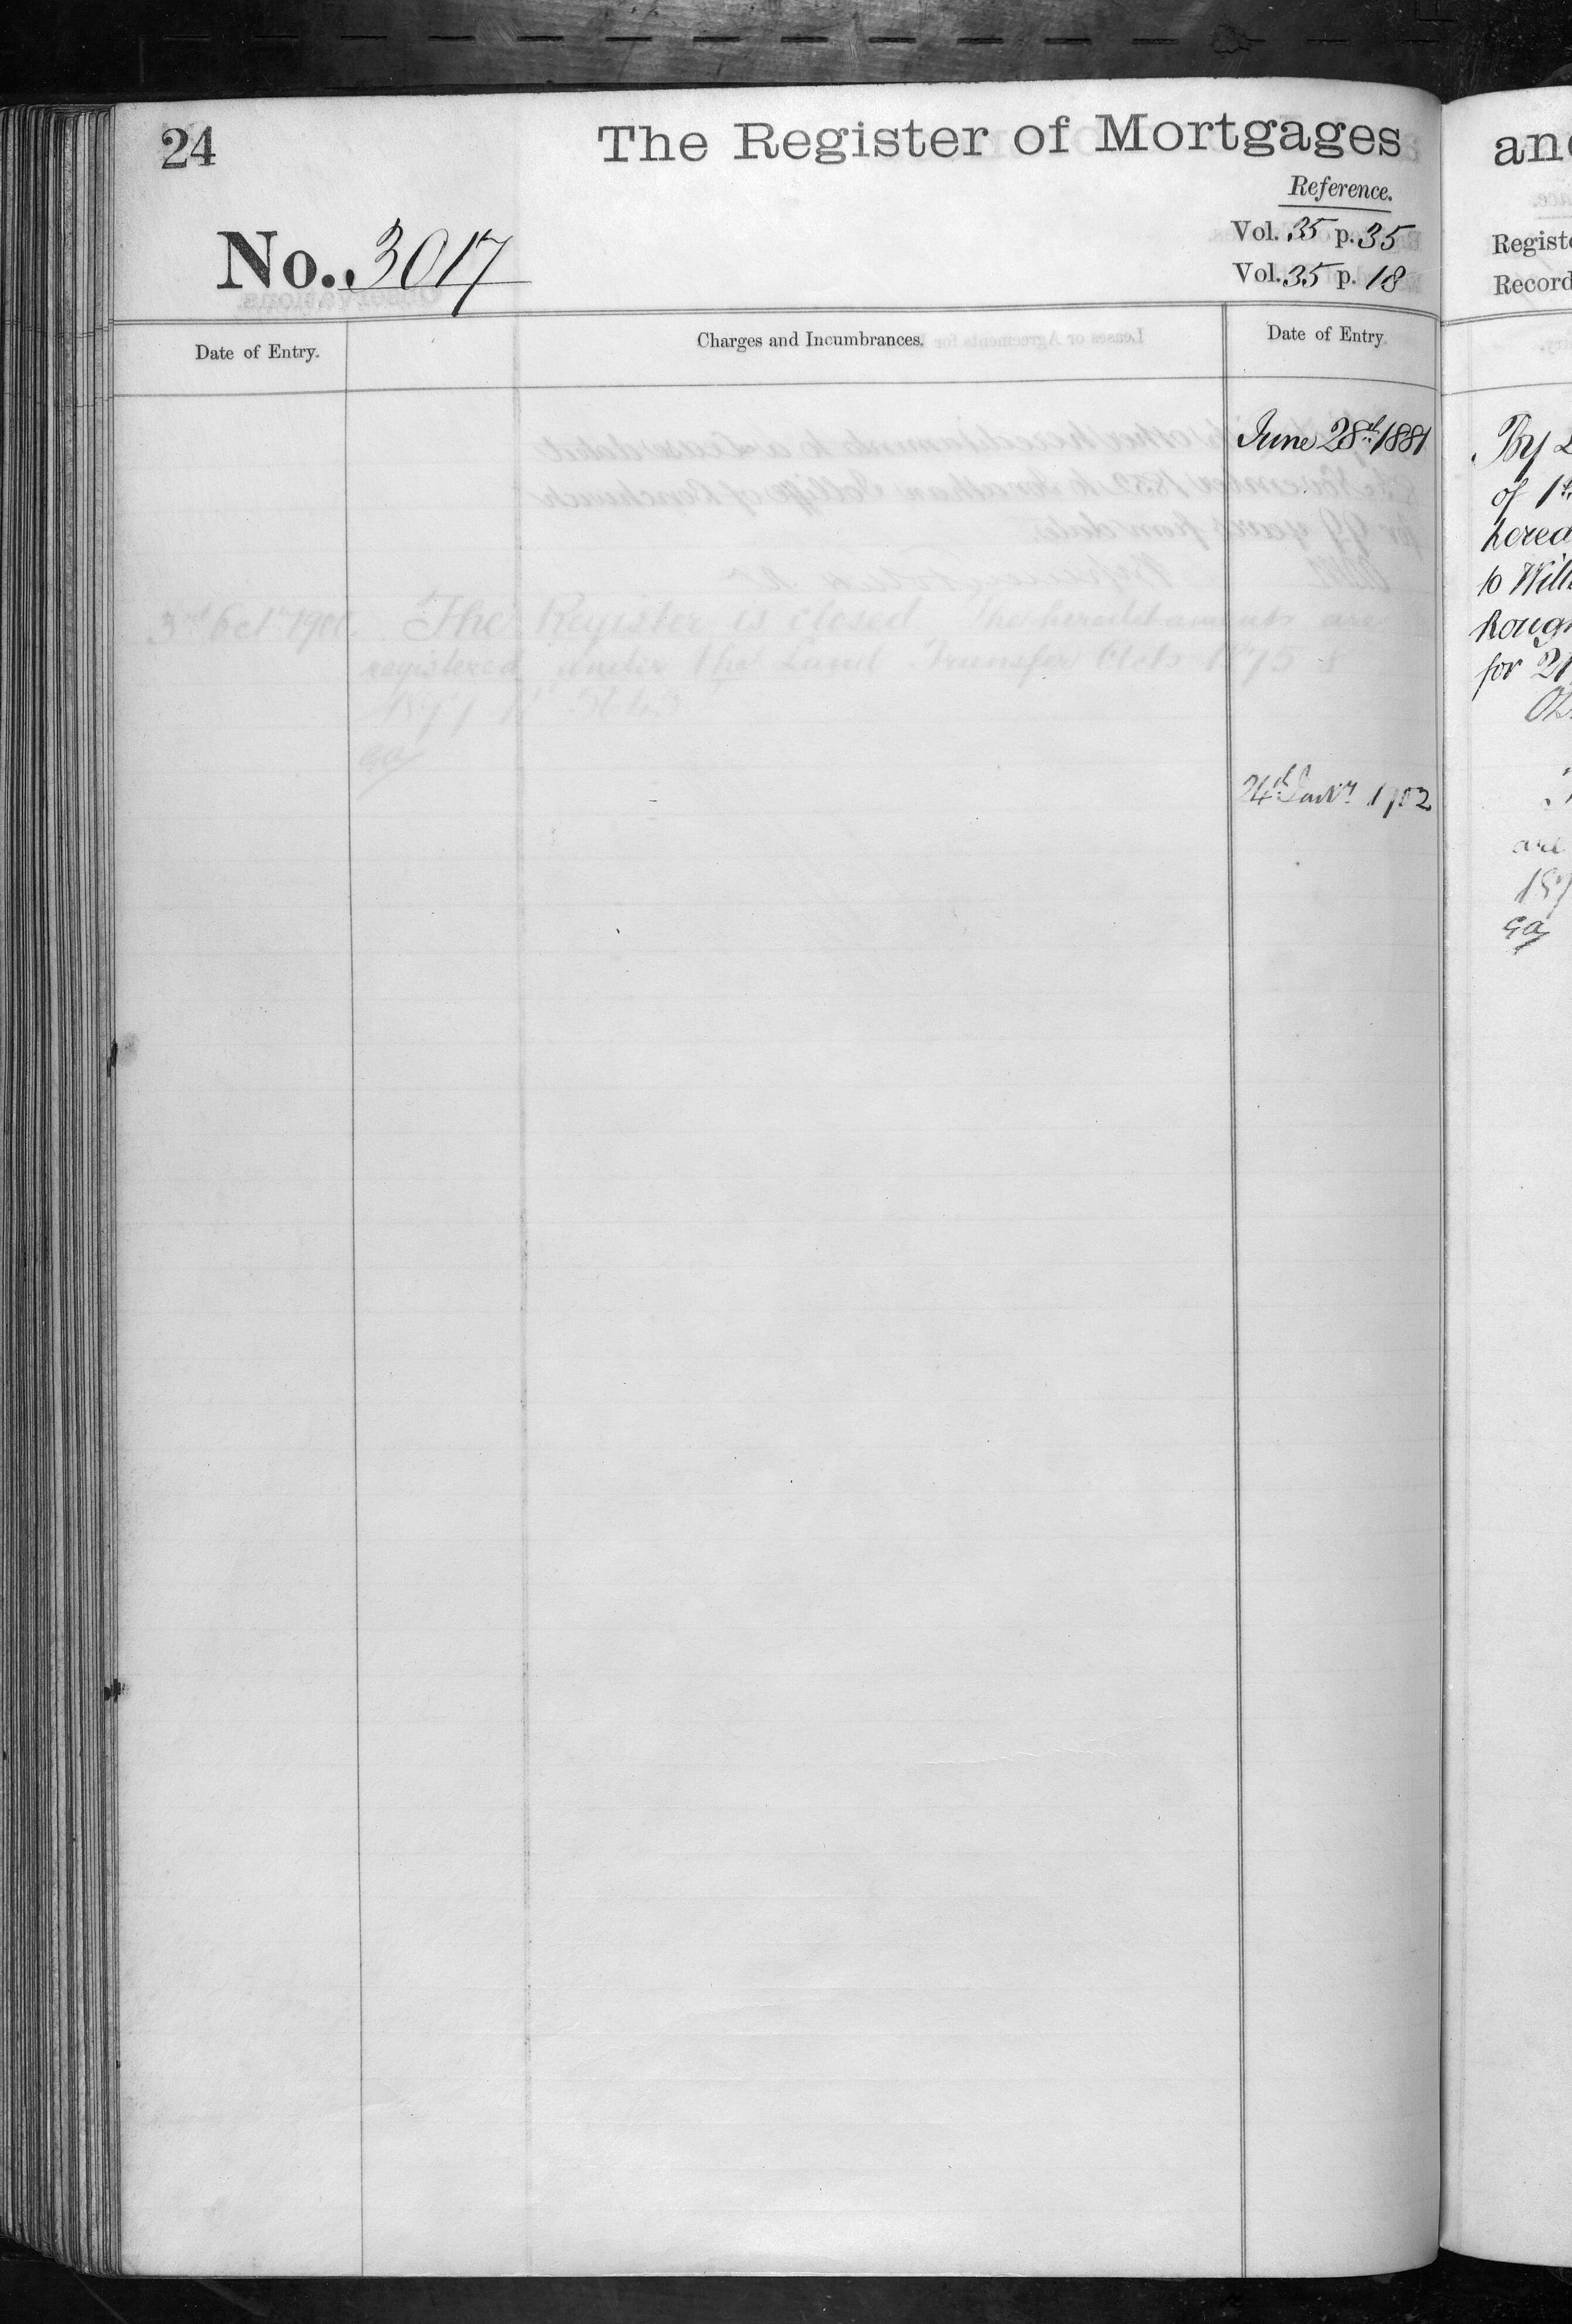 24
The Register of Mortgages
Reference.
No. 3017
Vol. 35 p. 35
Vol. 35 p. 18
Date of Entry.
Charges and Incumbrances.
Date of Entry.
June 28th 1881
The Register is closed. The hereditaments are
registered under the Land Transfer Acts 1875 &
24th Jany. 1902
Ga
an
Registe
Record
By L
of 1st
hered
to Will
Rough
for 21
are
187
Ga